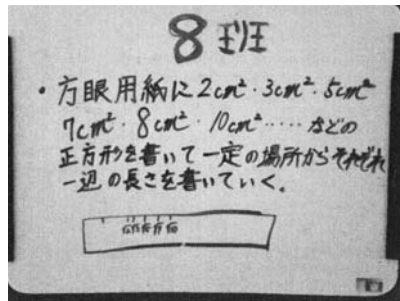 8班
・方眼用紙に2cm²・3cm²・5cm²
7cm²・8cm²・10cm²……などの
正方形を書いて一定の場所からそれぞれ
一辺の長さを書いていく。